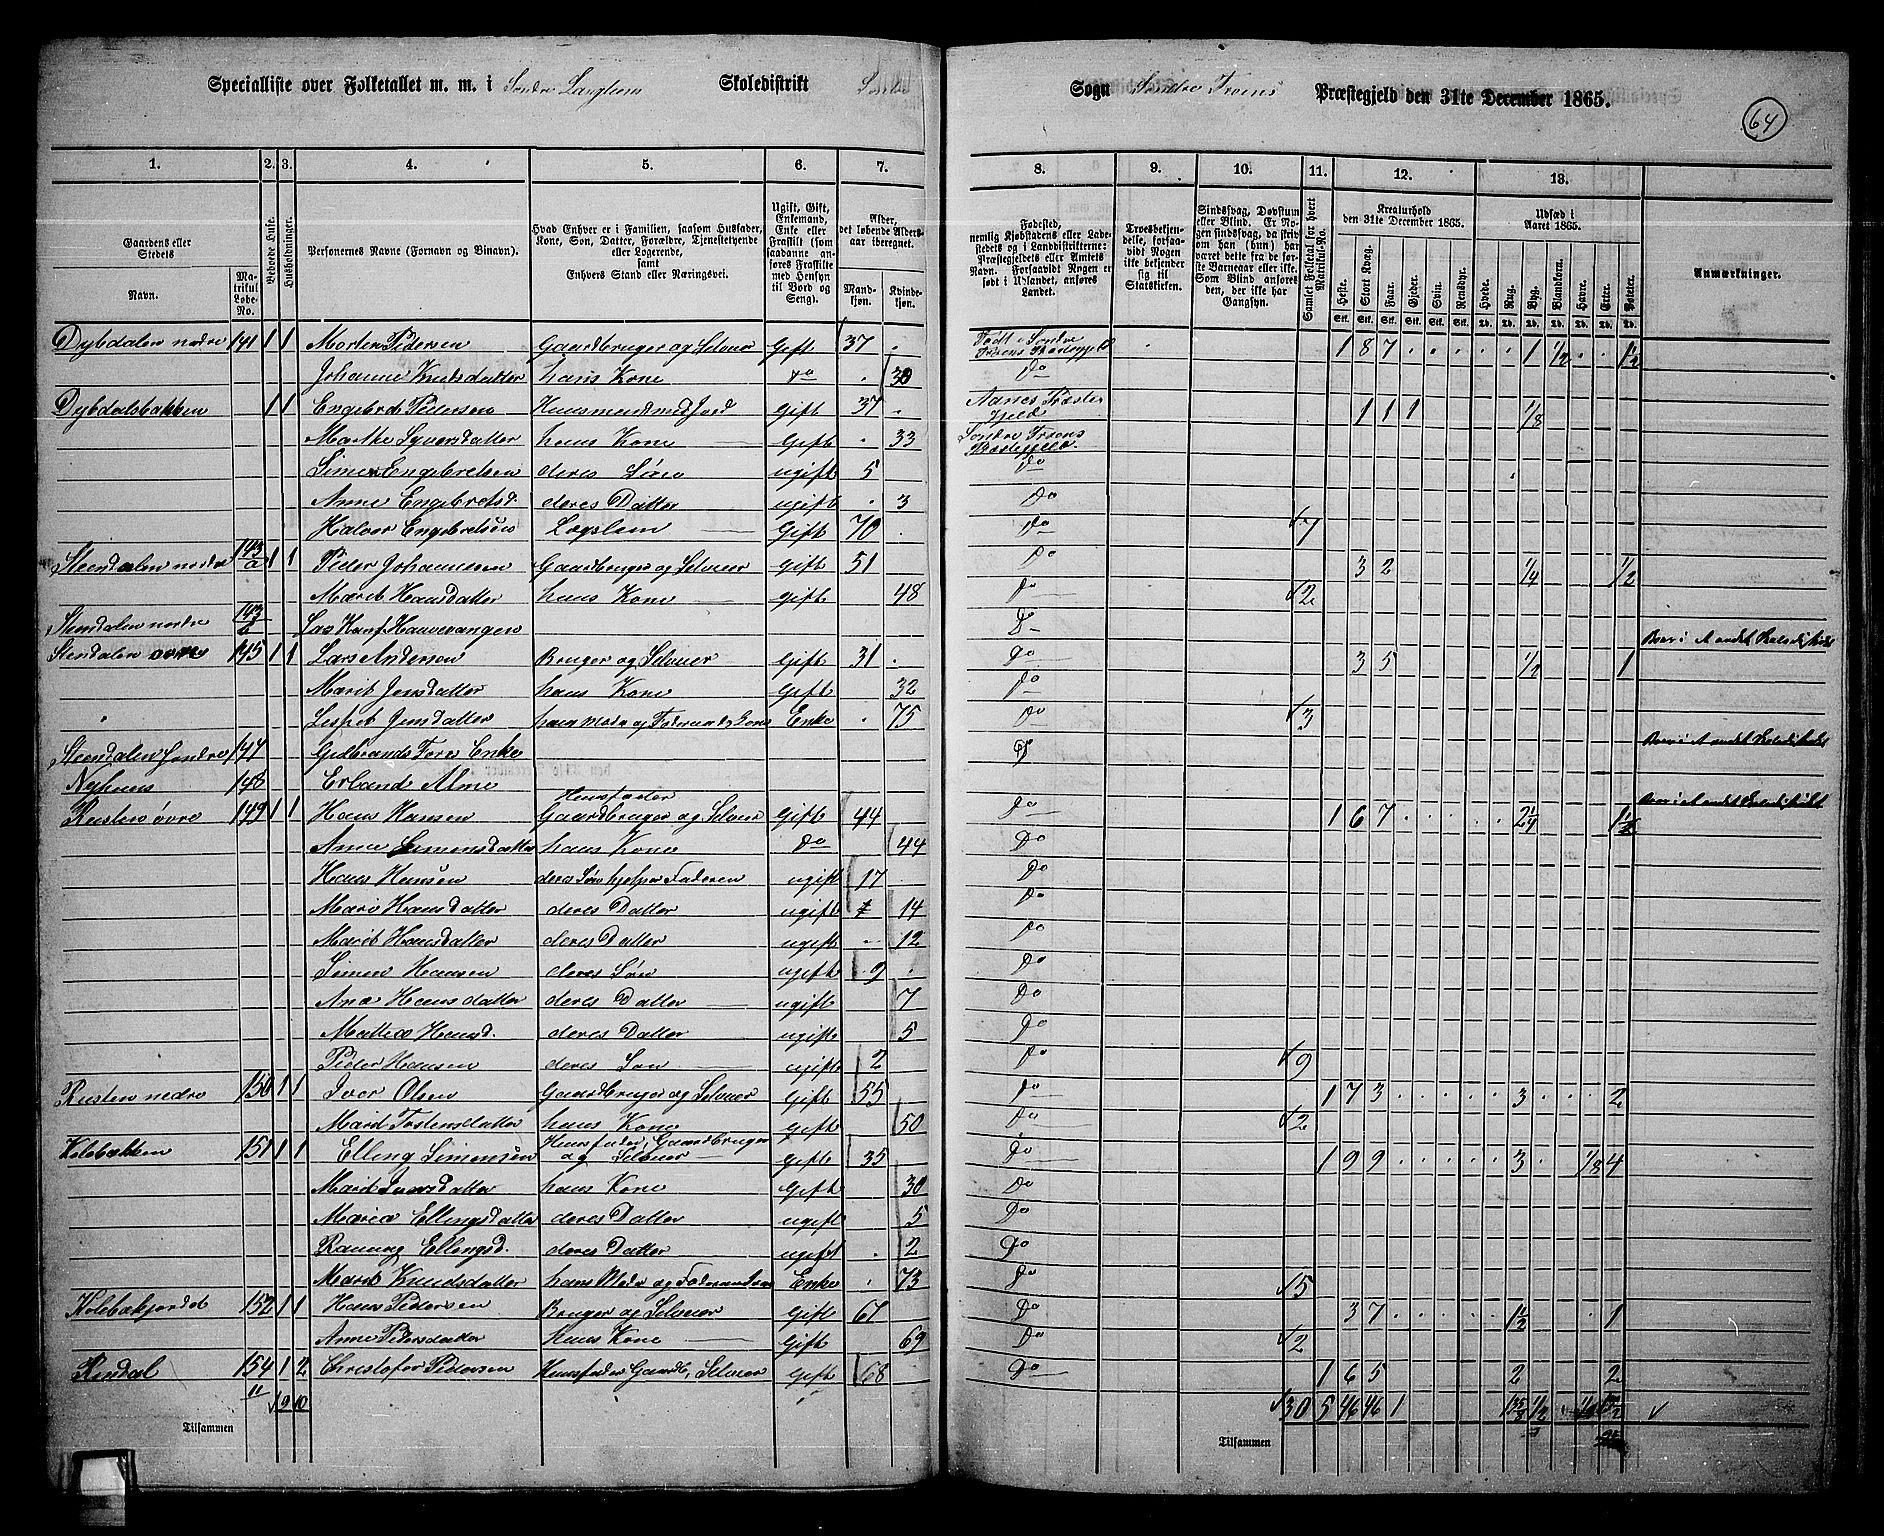 Specialliste over Folketallet m. m. i Søndre Skoledistrikt
Sogn Søndre Froens Præstegjeld den 31te December 1865.
64
1. 2. 3. 4. 5. 6. 7. 8. 9. 10. 11. 12. 13.
Gaardens eller Stedets
Navn.
Matrikul Løbe-No.
Beboede Huse.
Husholdninger.
Personernes Navne (Fornavn og Binavn).
Hvad Enhver er i Familien, saasom Husfader, Kone, Søn, Datter, Forældre, Tjenestetyende eller Logerende,
samt
Enhvers Stand eller Næringsvei.
Ugift, Gift, Enkemand, Enke eller Fraskilt (som saadanne anføres Fraskilte med Hensyn til Bord og Seng).
Alder, det løbende Aldersaar iberegnet.
Mandkjøn. Kvindekjøn.
Fødested,
nemlig Kjøbstadens eller Ladestedets og i Landdistrikterne: Præstegjeldets eller Amtets Navn. Forsaavidt Nogen er født i Udlandet, anføres Landet.
Troesbekjendelse, forsaavidt Nogen ikke bekjender sig til Statskirken.
Sindssvag, Døvstum eller Blind. Er Nogen sindssvag, da skrives om han (hun) har været dette fra de første Barneaar eller ikke. Som Blind anføres den, der ikke har Gangsyn.
Samlet Folketal for hvert Matrikul-No.
Kreaturhold
den 31te December 1865.
Heste. Stort Kvæg. Faar. Gjeder. Svin. Rensdyr.
Udsæd i
Aaret 1865.
Hvede. Rug. Byg. Blandkorn. Havre. Erter. Poteter.
Anmærkninger.
Dybdalen nedre 141 1 1 Morten Pedersen Gaardbruger og Selveier Gift 37 Født i Søndre Froens Præstegjeld 1 8 7 1 1/2 1½
Johanne Knudsdatter hans Kone do 30 Do
Dybdalsbakken 1 1 Engebret Pedersen Huusmand med Jord Gift 37 1 1 1 1/8
Marthe Syversdatter hans Kone Gift 33 Søndre Froens Præstegjeld
Simen Engebretsen deres Søn ugift 5 Do
Anne Engebretsd. deres Datter ugift 3 Do
Halvor Engebretsen Lægslem Gift 70 Do 7
Steendalen nordre 143/a 1 1 Peder Johannesen Gaardbruger og Selveier gift 51 Do 3 2 1/4 1/2
Marit Hansdatter hans Kone gift 48 Do 2
Steendalen nordre 143/b
Stendalen øvre 145 1 1 Lars Anderson Bruger og Selveier Gift 31 Do 3 5 1/2 1
Marit Jensdatter hans Kone Gift 32 Do
Enke 75 Do 3
Steendalen Søndre 144 Gulbrands Enke
Nyhuus 148 Erland
Rusten øvre 149 1 1 Hans Hansen Huusfader Gaardbruger og Selveier Gift 44 Do 1 6 7 2¼ 1½
Anne Simensdatter hans Kone Do 44 Do
Hans Hansen deres Søn hjelper Faderen ugift 17 Do
Mari Hansdatter deres Datter ugift 14 Do
Marit Hansdatter deres Datter ugift 12 Do
Simen Hansen deres Søn ugift 9 Do
Ane Hansdatter deres Datter ugift 7 Do
Mathea Hansd. deres Datter ugift 5 Do
Peder Hansen deres Søn ugift 2 Do 9
Rusten nedre 150 1 1 Iver Olsen Gaardbruger og Selveier Gift 55 Do 1 7 3 3 2
Marit Tostensdatter hans Kone Gift 50 Do 2
Kolebakken 151 1 1 Elling Simensen Huusfader, Gaardbruger og Selveier Gift 35 Do 1 9 9 3 1/8 4
Marit Iversdatter hans Kone Gift 30 Do
Maria Ellingsdatter deres Datter ugift 5 Do
Rannug Ellingsd. deres Datter ugift 2 Do
Marit Knudsdatter Enke 73 Do 5
152 1 1 Hans Pedersen Bruger og Selveier Gift 67 Do 3 7 1½ 1
Anne Pedersdatter hans Kone Gift 69 Do 2
Rindal 154 1 2 Christofer Pedersen Huusfader Gaardb, Selveier Gift 68 Do 1 6 5 2 2
11 9 10 30 5 46 46 1
Tilsammen
Tilsammen